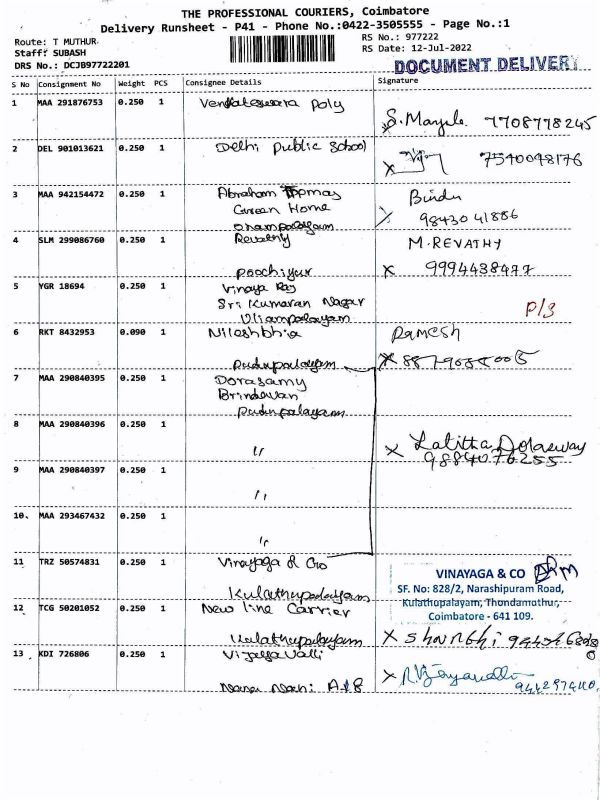 THE PROFESSIONAL COURIERS, Coimbatore
Delivery Runsheet - P41 - Phone No.:0422-3505555 - Page No.:1
Route: T MUTHUR
Staff: SUBASH
DRS No.: DCJB97722201
RS No.: 977222
RS Date: 12-Jul-2022
DOCUMENT DELIVERY
S No Consignment No Weight PCS Consignee Details Signature
1 MAA 291876753 0.250 1 Venkateswara Poly
7708778245
2 DEL 901013621 0.250 1 Delhi Public School
X 7540048176
3 MAA 942154472 0.250 1 Abraham Thomas Bindu
Green Home
X 98430 41886
4 SLM 299086760 0.250 1 Revathy M.REVATHY
Poochiyur X 9994438477
5 YGR 18694 0.250 1 Vinaya Raj
Sri Kumaran Nagar
Uliampalayam P/3
6 RKT 8432953 0.090 1 Nileshbhia Ramesh
Pudupalayam X
7 MAA 290840395 0.250 1 Dorasamy
Brindavan
Pudupalayam
8 MAA 290840396 0.250 1
" X Lalitha Doraswamy
9884076255
9 MAA 290840397 0.250 1
"
10. MAA 293467432 0.250 1
"
11 TRZ 50574831 0.250 1 Vinayaga & Co
Kulathupalayam
VINAYAGA & CO
SF. No: 828/2, Narashipuram Road,
Kulathupalayam, Thondamuthur,
Coimbatore - 641 109.
12 TCG 50201052 0.250 1 New line Carrier
Kulathupalayam X
13 KDI 726806 0.250 1 Vijayavalli
X R.Vijayavalli